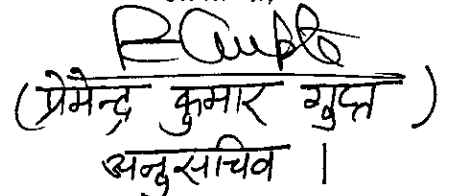 (प्रेमेन्द्र कुमार गुप्त)
अनुसचिव ।